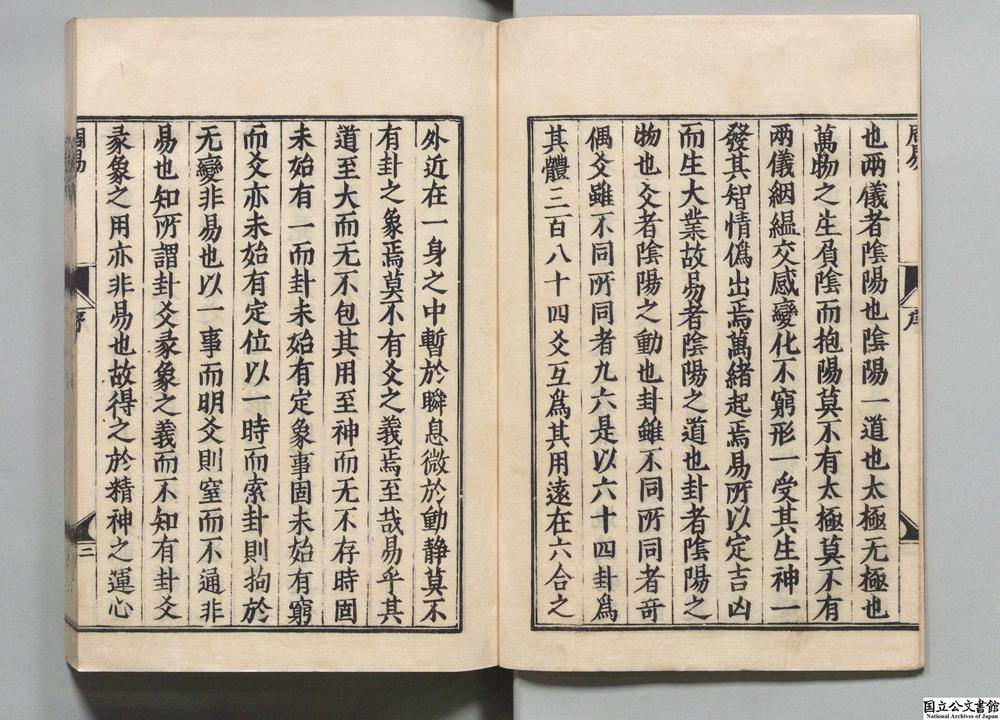 周易
序
也兩儀者陰陽也陰陽一道也太極无極也
萬物之生負陰而抱陽莫不有太極莫不有
兩儀絪縕交感變化不窮形一受其生神一
發其智情僞出焉萬緒起焉易所以定吉凶
而生大業故易者陰陽之道也卦者陰陽之
物也爻者陰陽之動也卦雖不同所同者竒
偶爻雖不同所同者九六是以六十四卦爲
其體三百八十四爻互爲其用遠在六合之
外近在一身之中暫於瞬息微於動静莫不
有卦之象焉莫不有爻之義焉至哉易乎其
道至大而无不包其用至神而无不存時固
未始有一而卦未始有定象事固未始有窮
而爻亦未始有定位以一時而索卦則拘於
无變非易也以一事而明爻則窒而不通非
易也知所謂卦爻彖象之義而不知有卦爻
彖象之用亦非易也故得之於精神之運心
周易
序
二
国立公文書館
National Archives of Japan